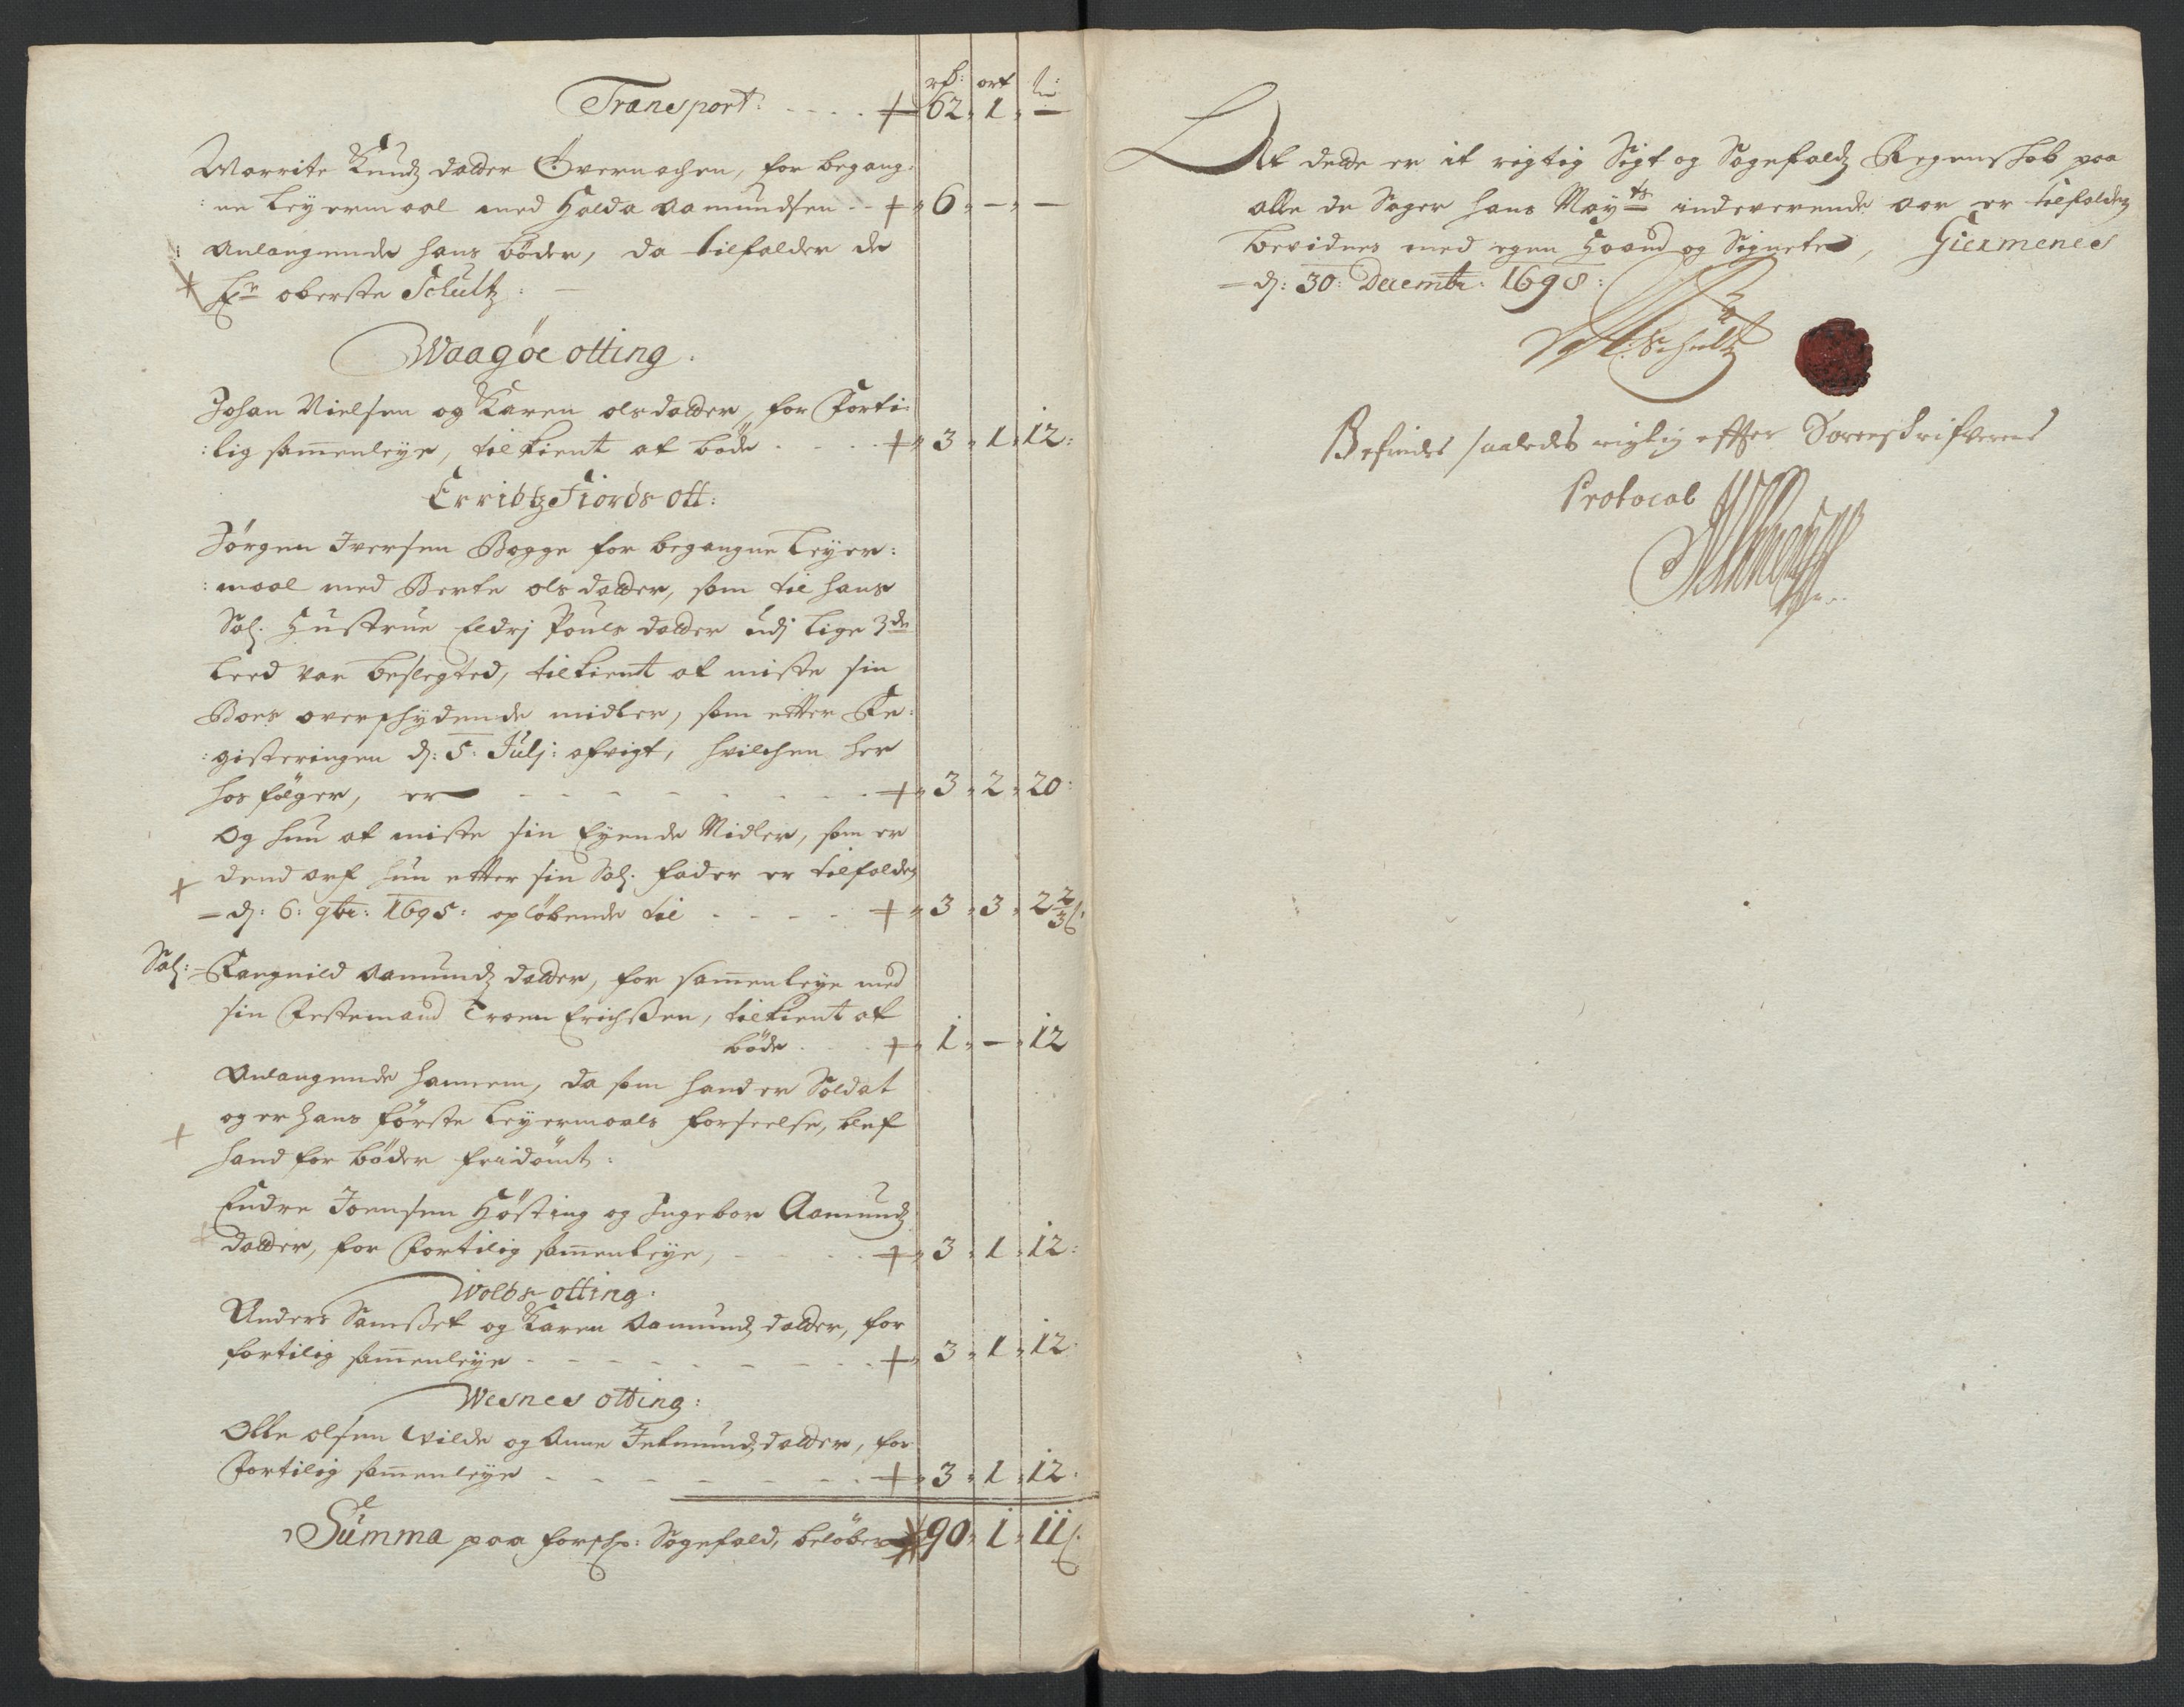 rd: ort s:
Transport: - - - - + 62 „ 1 „ —
Marrite Knudz datter Øvernachen, for begang:
:ne Leyermaal med Halda Aamundsen - - + „ 6 „ — „ —
Anlangende hans bøder, da tilfalder de
Hr oberste Schultz: —
Waagöe otting.
Johan Nielsen og Karen olsdatter, for Forti:
:lig sammenleye, tilkient at bøde - - - + „ 3 „ 1 „ 12:
Erridtzfiords ott:
Jørgen Iversen Bogge for begangne Leyer:
:maal med Berte olsdatter, som til hans
Sal: Hustrue Eldrj Pouls datter udj Lige 3de
Leed var beslegted, tilkient at miste sin
Boes overschydende midler, som efter Re:
:gisteringen d: 5: Julj: afvigt, hvilchen her
hos følger, er - - - - - + „ 3 „ 2 „ 20:
Og hun at miste sin Eyende Midler, som er
+ dend arf hun efter sin Sal: fader er tilfalden
d: 6: 9br: 1695: opløbende til - - - - + „ 3 „ 3 „ 2 2/3 s:
Sal: Rangnild Aamundz datter, for sammenleye med
sin Festemand Troen Erichßen, tilkient at
bøde - - + „ 1 „ — „ 12
Anlangende hannem, da som hand er Soldat
+ og er hans første Leyermaals forseelse, blef
hand for bøder fridømt:
Endre Joensen Høsting og Ingebor Aamundz
datter, for Fortilig sammenleye, - - - + „ 3 „ 1 „ 12:
Wolds otting:
Anders Samßet og Karen Aamundz datter, for
fortilig sammenleye - - - - - + „ 3 „ 1 „ 12:
Wesnes otting:
Olle olsen Vilde og Anne Jetmundz datter, for
Fortilig sammenleye - - - - - + „ 3 „ 1 „ 12:
Summa paa forschr: Sagefald, beløber 90 „ 1 „ 11 s:
At dette er it rigtig Sigt og Sagefaldz Regenskab paa
alle de Sager hans Mayts indeverende aar er tilfalden
bevidnes med egen Haand og Signete, Giermenes
d: 30: Decembr: 1698:
Schultz
Befindes saaledes rigtig effter Sorenskrifverens
Protocol